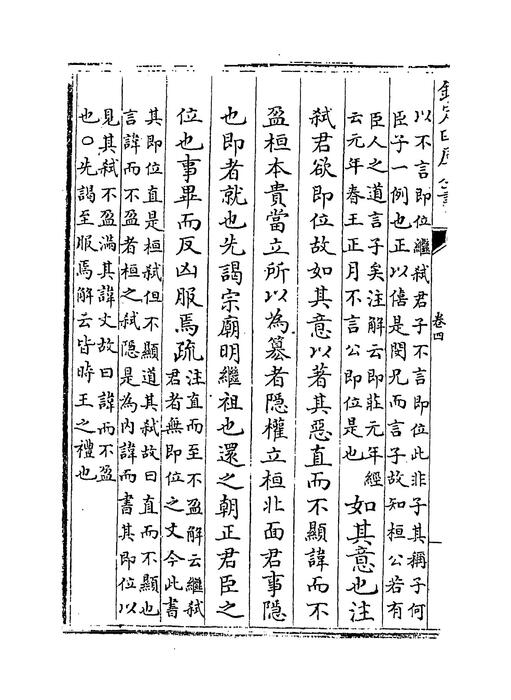 欽定四庫全書
卷四
以不言即位繼弑君子不言即位此非子其稱子何
臣子一例也正以僖是閔兄而言子故知桓公若有
臣人之道言子矣注解云即莊元年經
云元年春王正月不言公即位是也
如其意也注
弑君欲即位故如其意以著其惡直而不顯諱而不
盈桓本貴當立所以為簒者隱權立桓北面君事隱
也即者就也先謁宗廟明繼祖也還之朝正君臣之
位也事畢而反凶服焉疏
注直而至不盈解云繼弑
君者無即位之文今此書
其即位直是桓弑但不顯道其弑故曰直而不顯也
言諱而不盈者桓之弑隱是為內諱而書其即位以
見其弑不盈滿其諱文故曰諱而不盈
也○先謁至服焉解云皆時王之禮也